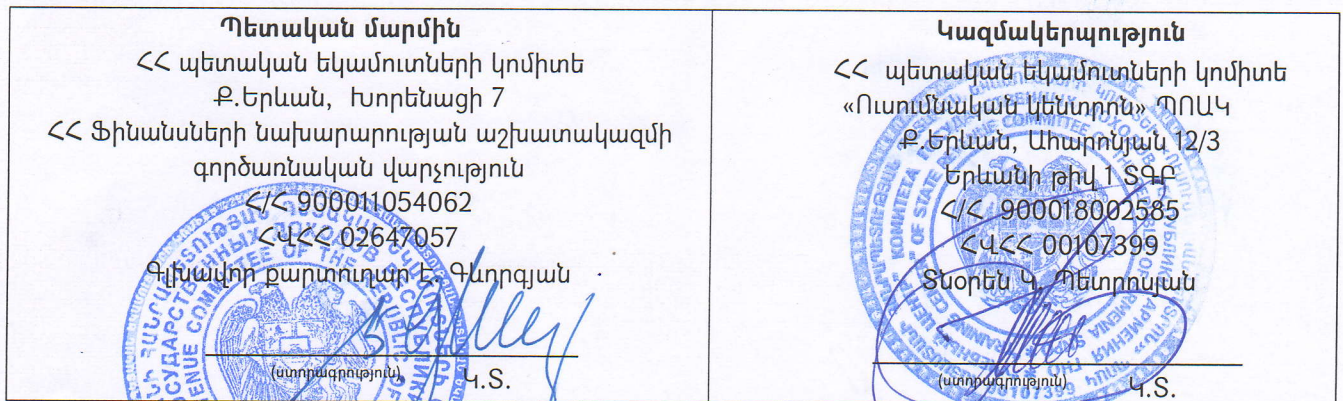 Պետական մարմին
ՀՀ պետական եկամուտների կոմիտե
Ք.Երևան, Խորենացի 7
ՀՀ Ֆինանսների նախարարության աշխատակազմի
գործառնական վարչություն
Հ/Հ 900011054062
ՀՎՀՀ 02647057
Գլխավոր քարտուղար Է. Գևորգյան
(ստորագրություն)
Կ.Տ.
Կազմակերպություն
ՀՀ պետական եկամուտների կոմիտե
«Ուսումնական կենտրոն» ՊՈԱԿ
Ք.Երևան, Ահարոնյան 12/3
Երևանի թիվ 1 ՏԳԲ
Հ/Հ 900018002585
ՀՎՀՀ 00107399
Տնօրեն Կ. Պետրոսյան
(ստորագրություն)
Կ.Տ.